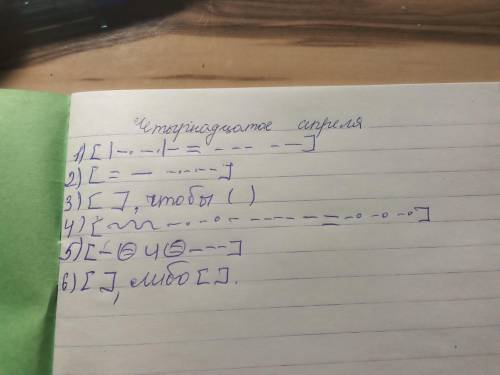 Четырнадцатое апреля
1) [ |-·-·|- = --- -- ]
2) [ = — -·-·-- ]
3) [ ], чтобы ( )
4) [ ~~~ -·-·- ---- — = -·-·-· ]
5) [ - ⊖ и ⊖ --- ]
6) [ ], либо [ ].